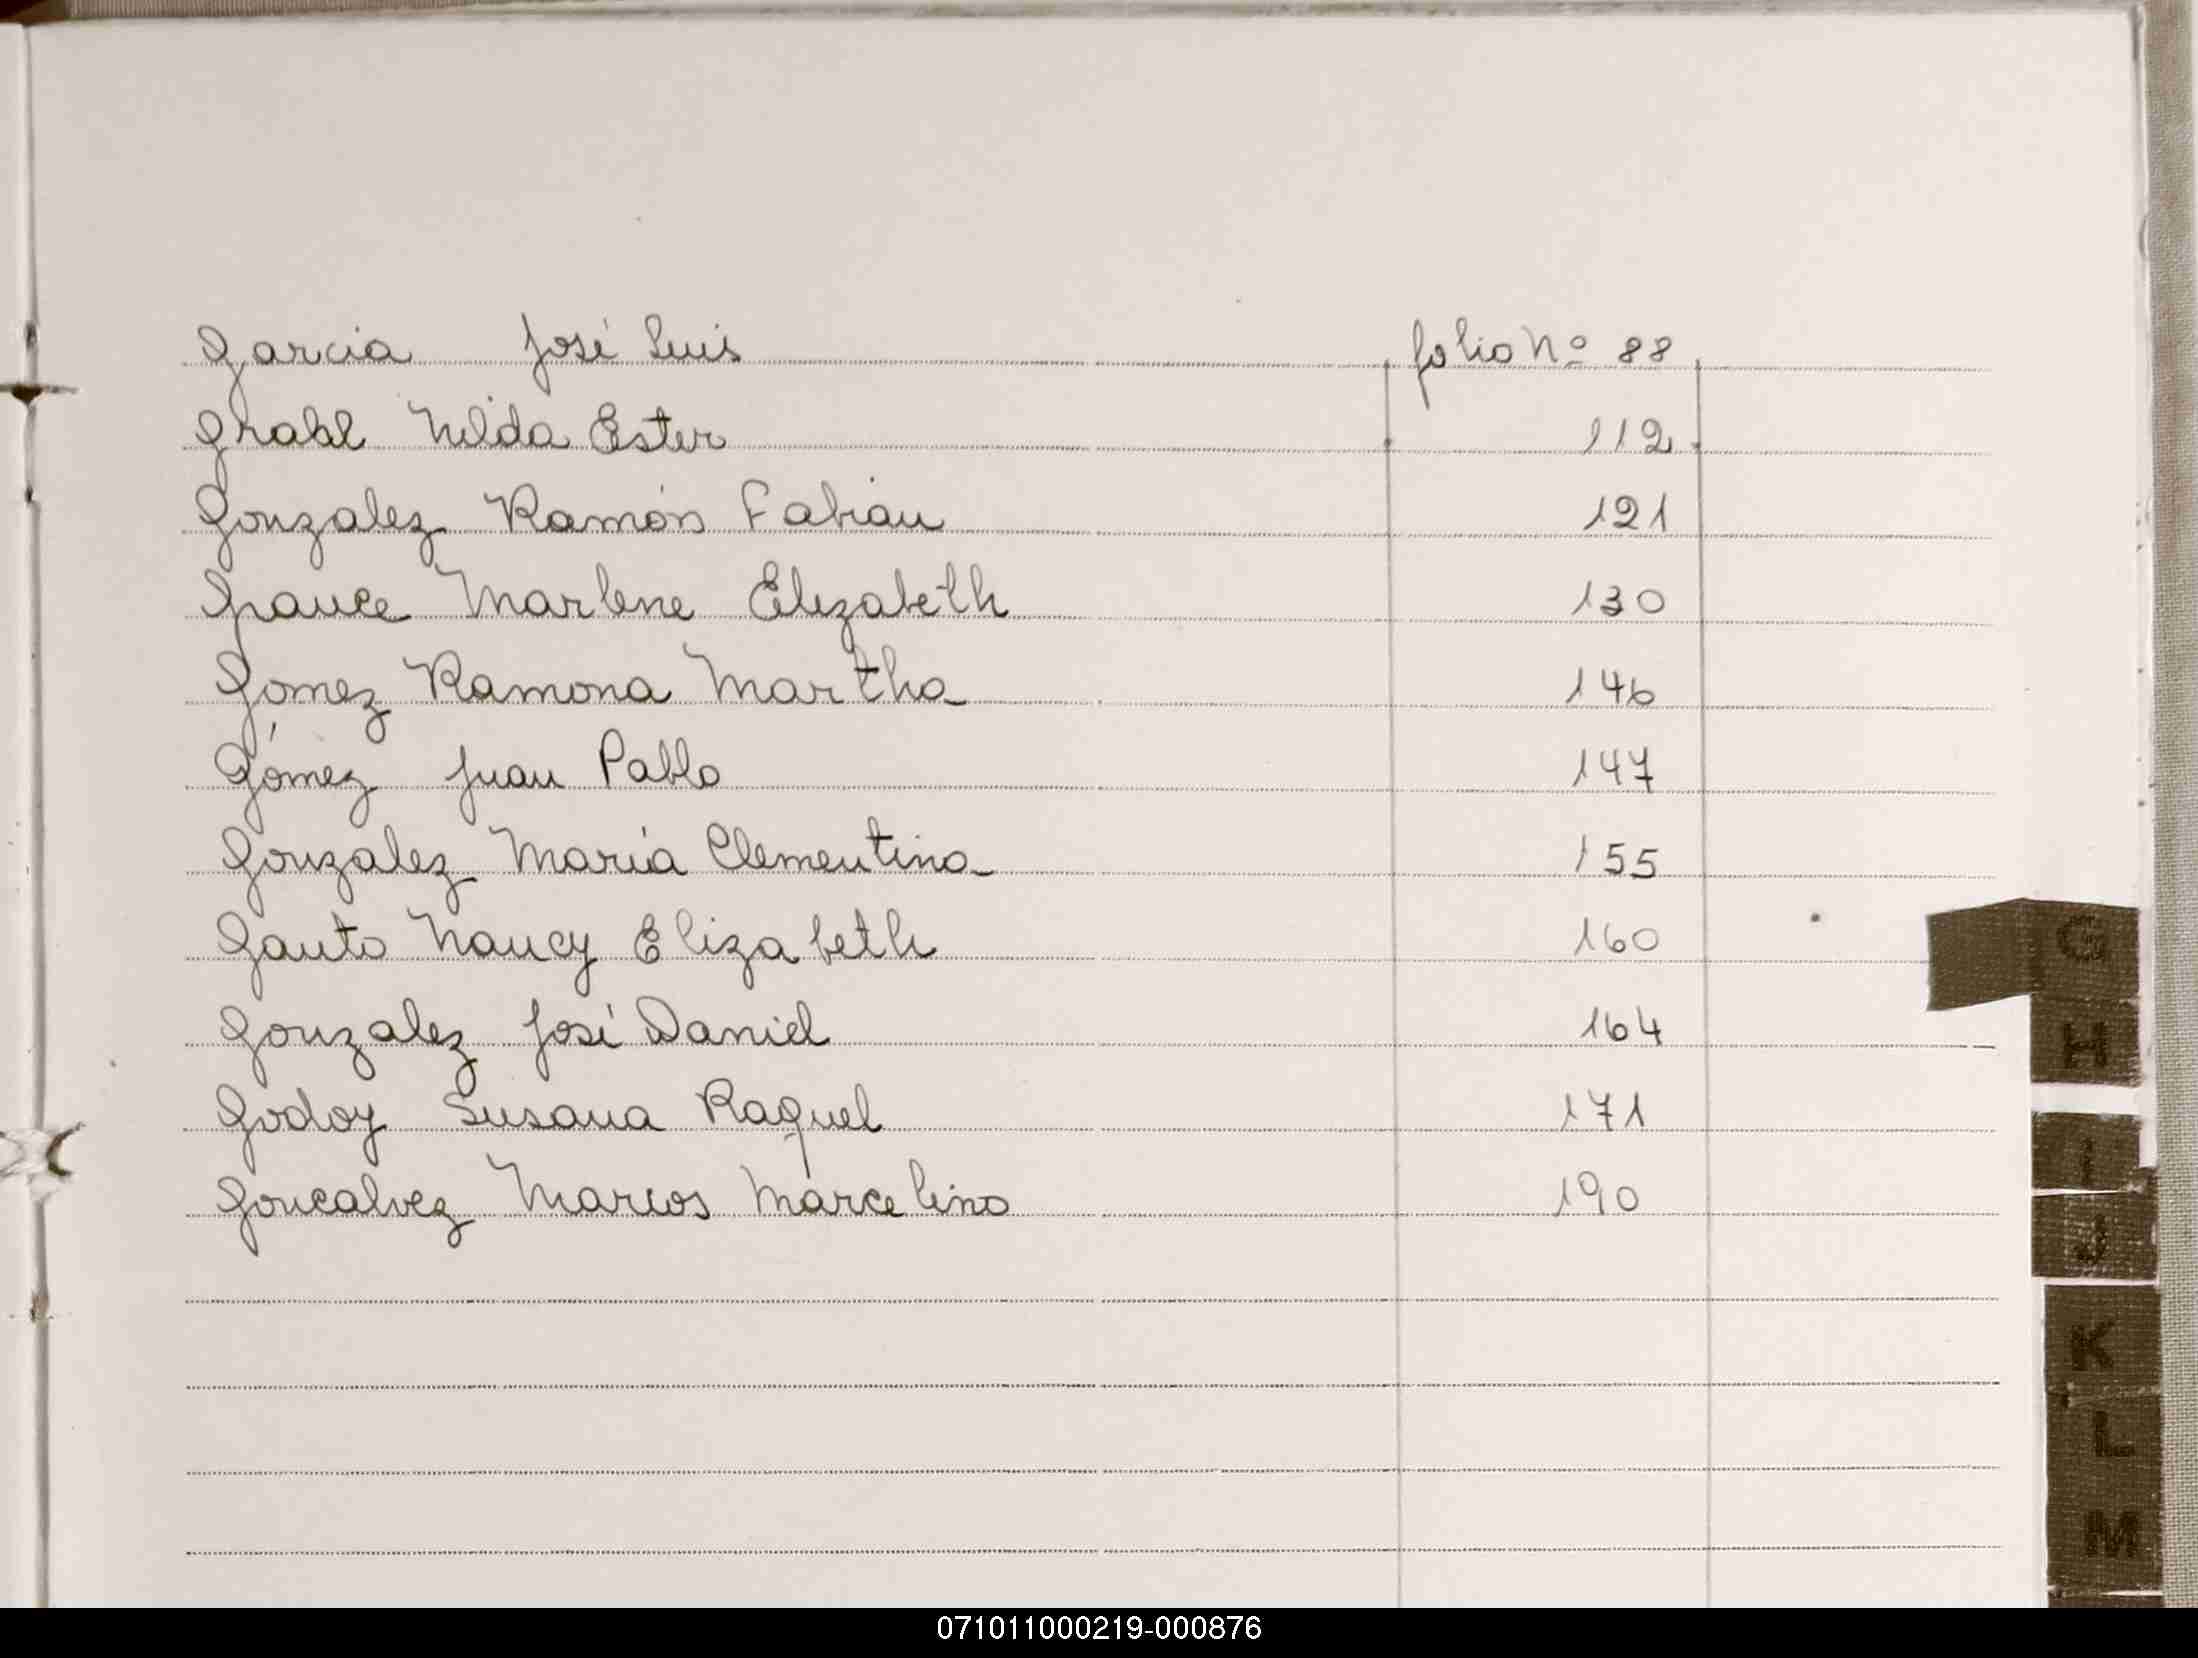 Garcia José Luis folio Nº 88
Grabl Nilda Ester 112
Gonzalez Ramón Fabian 121
Gauce Marlene Elizabeth 130
Gomez Ramona Martha 146
Gómez Juan Pablo 147
Gonzalez María Clementina 155
Gauto Nancy Elizabeth 160
Gonzalez José Daniel 164
Godoy Susana Raquel 171
Goncalvez Marcos Marcelino 190
G
H
I
J
K
L
M
071011000219-000876